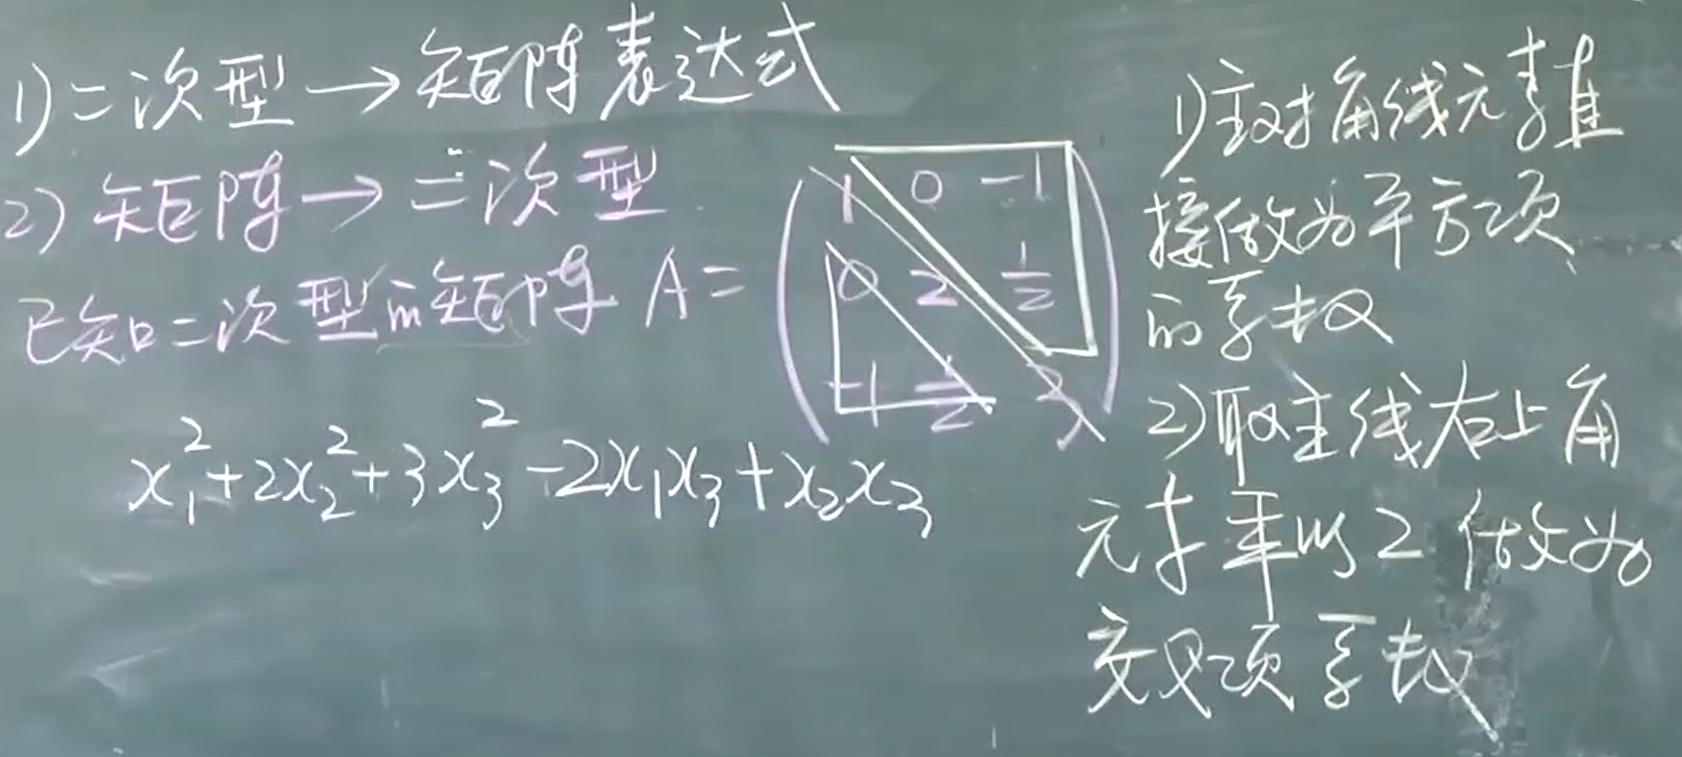 1)二次型→矩阵表达式
2)矩阵→二次型
已知二次型的矩阵 A=
1 0 -1
0 2 1/2
-1 1/2 3
x₁²+2x₂²+3x₃²-2x₁x₃+x₂x₃
1)主对角线元素直
接做为平方项
的系数
2)取主线右上角
元素乘以2做为
交叉项系数